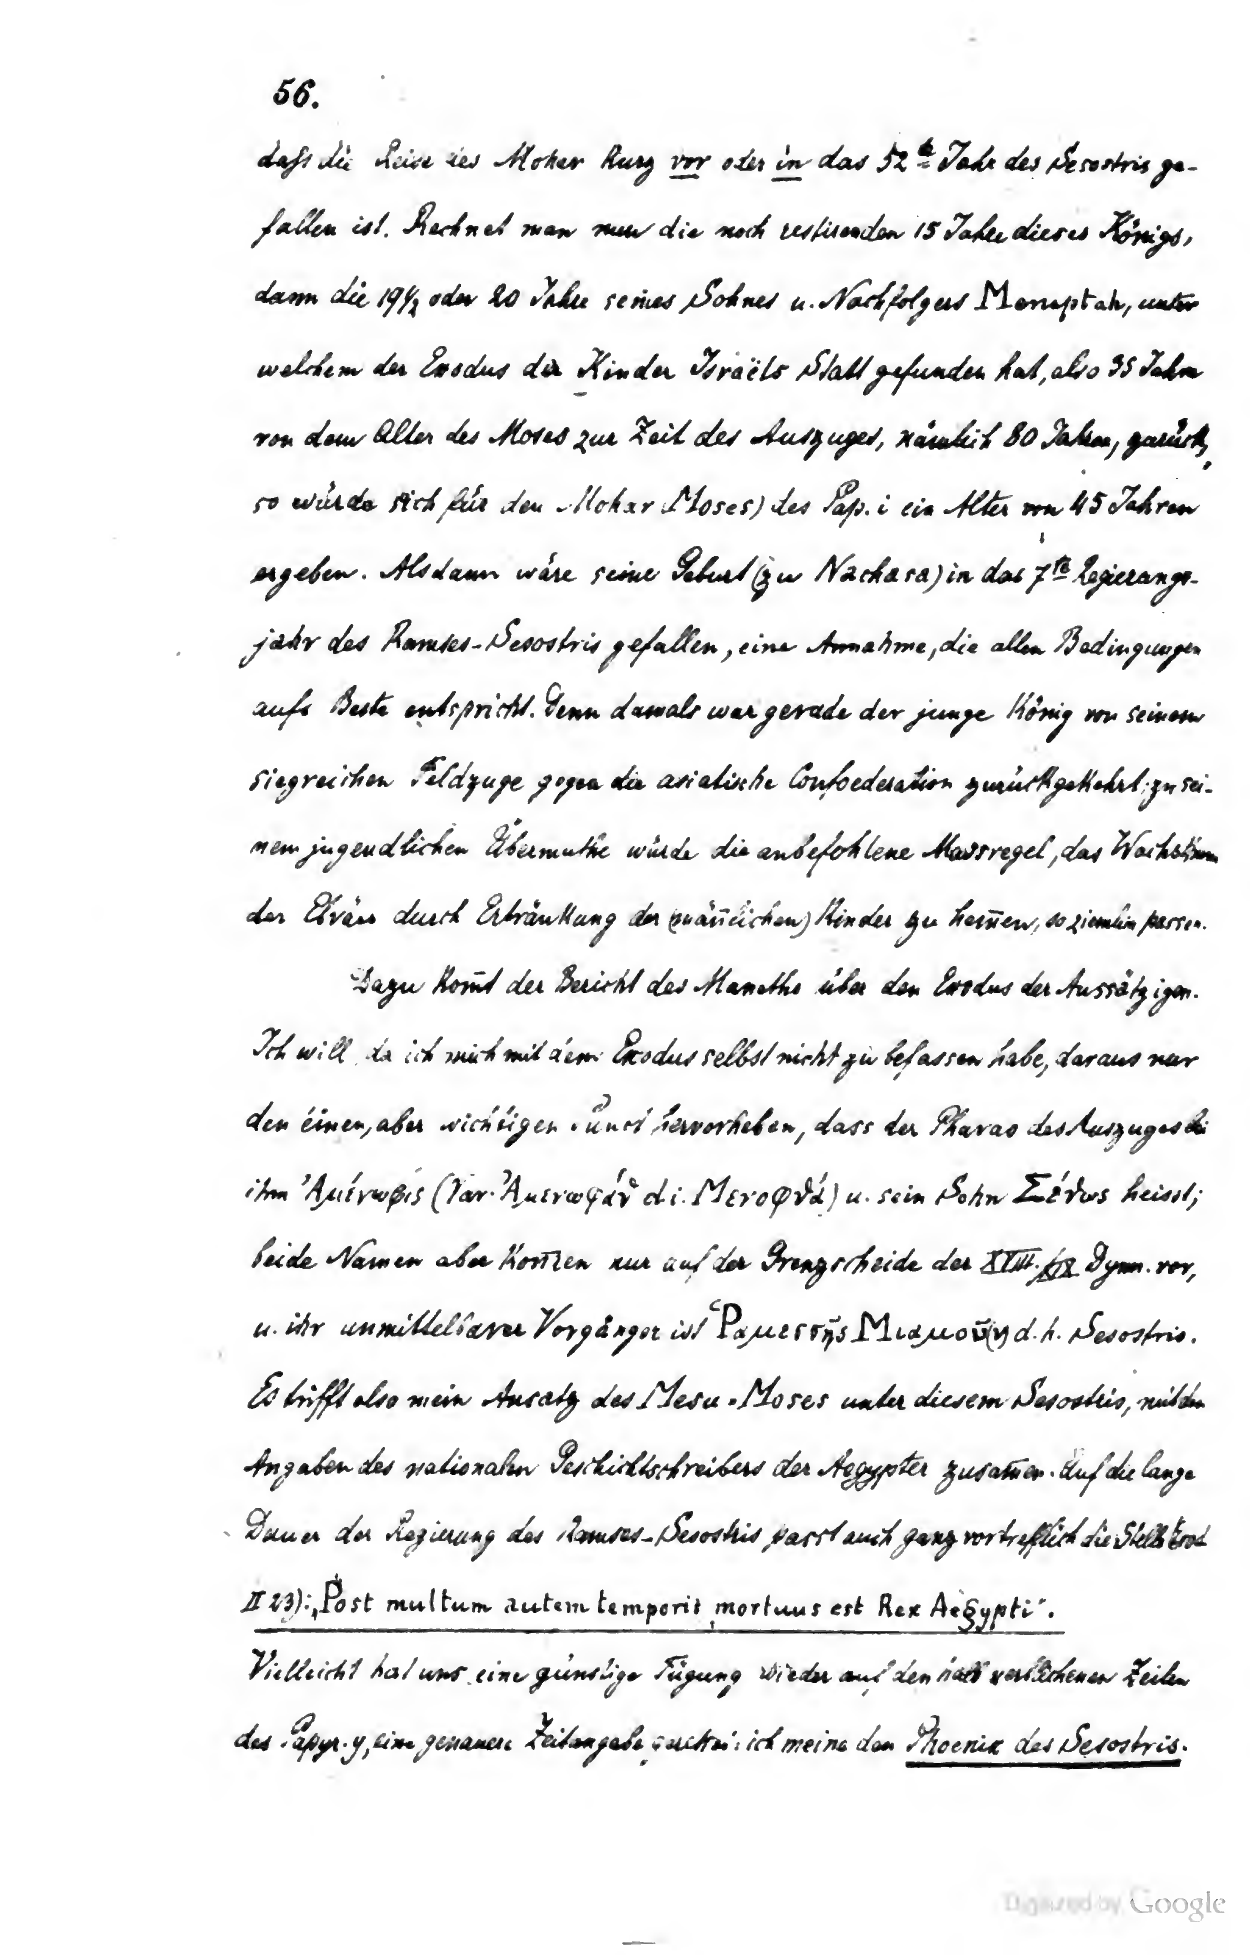 56.
daſs die Reise des Mohar kurz vor oder in das 52te Jahr des Sesostris ge-
fallen ist. Rechnet man nun die noch restirenden 15 Jahre dieses Königs,
dann die 19½ oder 20 Jahre seines Sohnes u. Nachfolgers Menuptah, unter
welchem der Exodus der Kinder Israëls Statt gefunden hat, also 35 Jahre
von dem Alter des Moses zur Zeit des Auszuges, nämlich 80 Jahren, zurück,
so würde sich für den Mohar (Moses) des Pap. i ein Alter von 45 Jahren
ergeben. Alsdann wäre seine Geburt (zu Nachasa) in das 7te Regierungs-
jahr des Ramses-Sesostris gefallen, eine Annahme, die allen Bedingungen
aufs Beste entspricht. Denn damals war gerade der junge König von seinem
siegreichen Feldzuge gegen die asiatische Confoederation zurückgekehrt; zu sei-
nem jugendlichen Übermuthe würde die anbefohlene Massregel, das Wachsthum
der Ebräer durch Ertränkung der (män̄lichen) Kinder zu hem̄en, so ziemlich passen.
Dazu kom̄t der Bericht des Manetho über den Exodus der Aussätzigen.
Ich will, da ich mich mit dem Exodus selbst nicht zu befassen habe, daraus nur
den einen, aber wichtigen Punct hervorheben, dass der Pharao des Auszuges bei
ihm Ἀμένωφις (Var. Ἀμενωφάθ d.i. Μενοφθά) u. sein Sohn Σέθως heisst;
beide Namen aber kom̄en nur auf der Grenzscheide der XVIII./XIX Dynn. vor,
u. ihr unmittelbarer Vorgänger ist Ῥαμεσσῆς Μιαμοῦ(ν) d.h. Sesostris.
Es trifft also mein Ansatz des Mesu-Moses unter diesem Sesostris, mit den
Angaben des nationalen Geschichtschreibers der Aegypter zusam̄en. Auf die lange
Dauer der Regierung des Ramses-Sesostris passt auch ganz vortrefflich die Stelle Exod
II 23): „Post multum autem temporis mortuus est Rex Aegypti".
Vielleicht hat uns eine günstige Fügung wieder auf den halb verlöschenen Zeilen
des Papyr. y, eine genauere Zeitangabe ich meine den Phoenix des Sesostris.
Digitized by Google